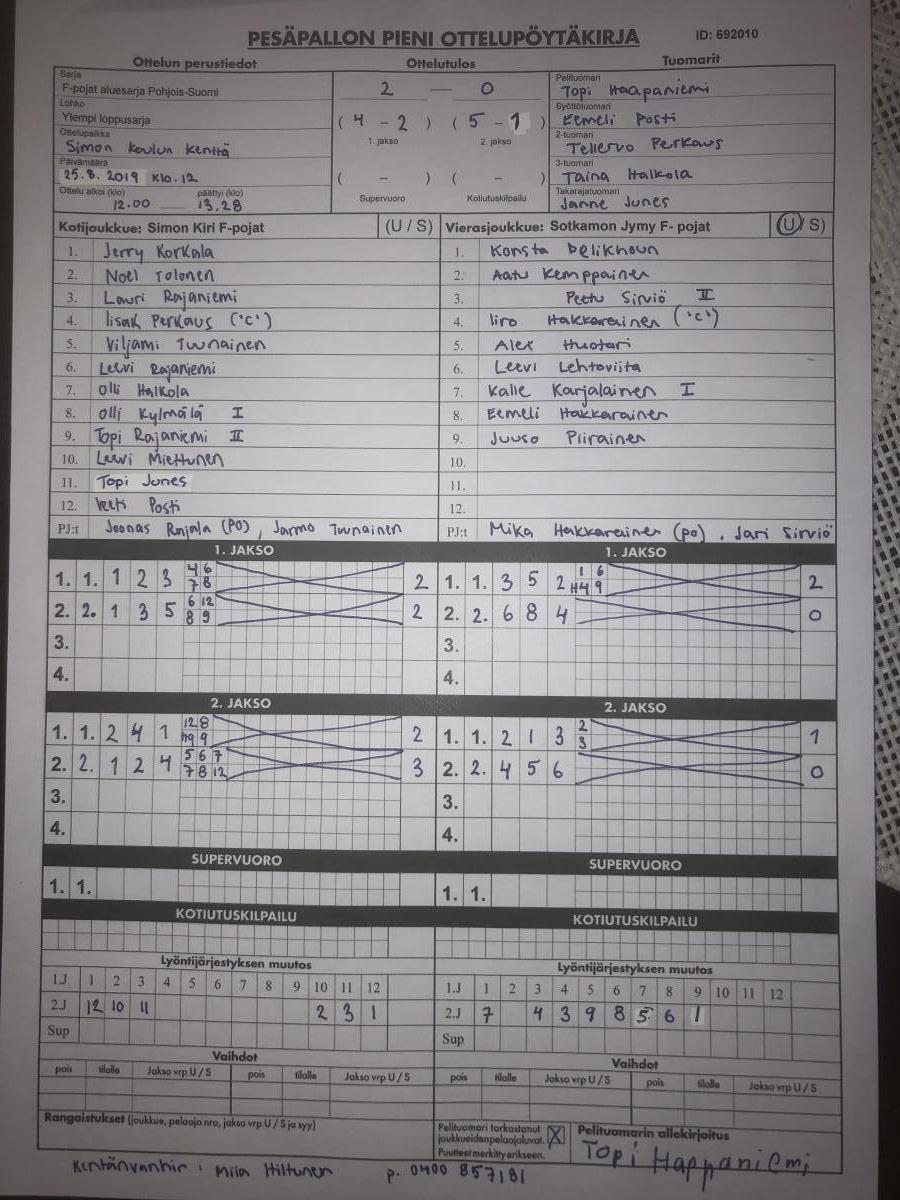 PESÄPALLON PIENI OTTELUPÖYTÄKIRJA ID: 692010
Ottelun perustiedot Ottelutulos Tuomarit
Sarja
F-pojat aluesarja Pohjois-Suomi
Lohko
Ylempi loppusarja
Ottelupaikka
Simon koulun kenttä
Päivämäärä
25.8.2019 klo.12
Ottelu alkoi (klo) päättyi (klo)
12.00 13.28
2 — 0
( 4 - 2 ) ( 5 - 1 )
1. jakso 2. jakso
( - ) ( - )
Supervuoro Kotiutuskilpailu
Pelituomari
Topi Haapaniemi
Syöttötuomari
Eemeli Posti
2-tuomari
Tellervo Perkaus
3-tuomari
Taina Halkola
Takarajatuomari
Janne Junes
Kotijoukkue: Simon Kiri F-pojat (U / S)
1. Jerry Korkala
2. Noel Tolonen
3. Lauri Rajaniemi
4. Iisak Perkaus ('C')
5. Viljami Tuunainen
6. Leevi Rajaniemi
7. Olli Halkola
8. Olli Kylmälä I
9. Topi Rajaniemi II
10. Leevi Miettunen
11. Topi Junes
12. Veeti Posti
PJ:t Joonas Rajala (PO), Jarmo Tuunainen
Vierasjoukkue: Sotkamon Jymy F- pojat (U / S)
1. Konsta Pelikhoun
2. Aatu Kemppainen
3. Peetu Sirviö II
4. Iiro Hakkarainen ('C')
5. Alex Huotari
6. Leevi Lehtoviita
7. Kalle Karjalainen I
8. Eemeli Hakkarainen
9. Juuso Piirainen
10.
11.
12.
PJ:t Mika Hakkarainen (po), Jari Sirviö
1. JAKSO
1. 1. 1 2 3 4 6 7 8 2
2. 2. 1 3 5 6 12 8 9 2
3.
4.
1. JAKSO
1. 1. 3 5 2 1 6 H4 9 2
2. 2. 6 8 4 0
3.
4.
2. JAKSO
1. 1. 2 4 1 12 8 H9 9 2
2. 2. 1 2 4 5 6 7 7 8 12 3
3.
4.
2. JAKSO
1. 1. 2 1 3 2 3 1
2. 2. 4 5 6 0
3.
4.
SUPERVUORO
1. 1.
SUPERVUORO
1. 1.
KOTIUTUSKILPAILU
KOTIUTUSKILPAILU
Lyöntijärjestyksen muutos
1.J 1 2 3 4 5 6 7 8 9 10 11 12
2.J 12 10 11 2 3 1
Sup
Lyöntijärjestyksen muutos
1.J 1 2 3 4 5 6 7 8 9 10 11 12
2.J 7 4 3 9 8 5 6 1
Sup
Vaihdot
pois tilalle Jakso vrp U / S pois tilalle Jakso vrp U / S
Vaihdot
pois tilalle Jakso vrp U / S pois tilalle Jakso vrp U / S
Rangaistukset (joukkue, pelaaja nro, jakso vrp U / S ja syy)
Pelituomari tarkastanut
joukkueidenpelaajaluvat. X
Puutteet merkitty erikseen.
Pelituomarin allekirjoitus
Topi Happaniemi
Kentänvanhin: Miia Hiltunen p. 0400 857181